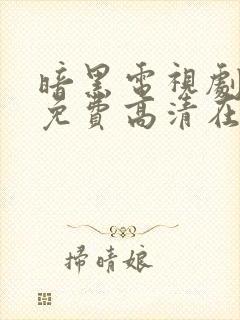 暗黑電視劇
免費高清在
掃晴娘